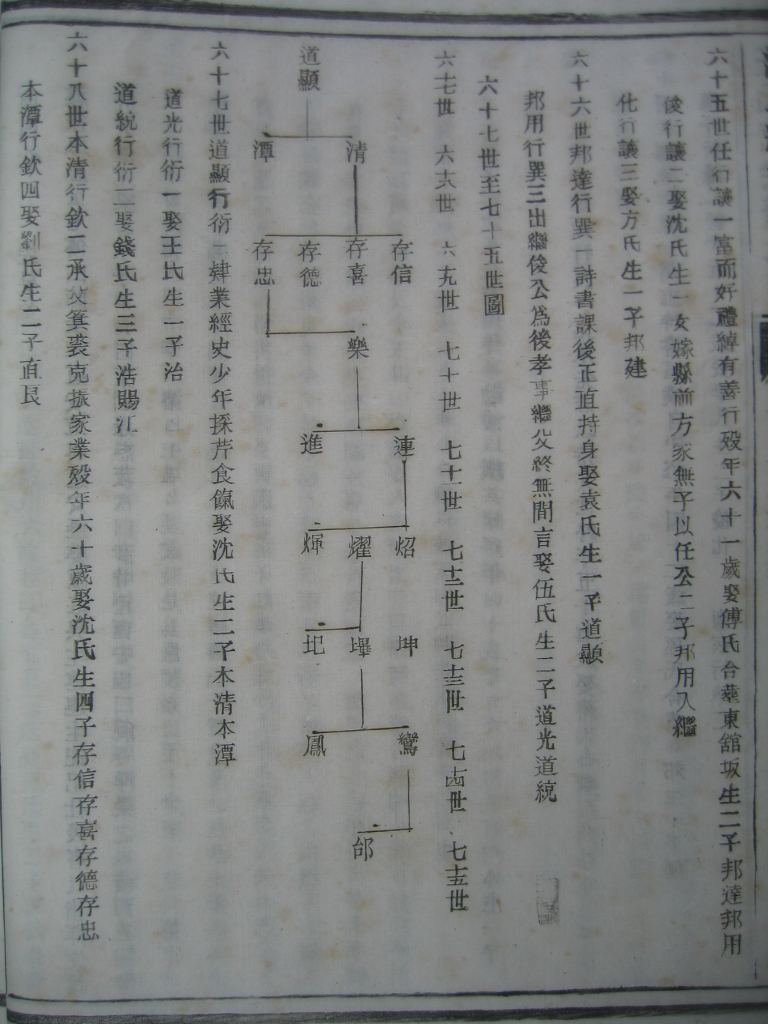 六十五世任行讓一富而好禮綽有善行殁年六十一歲娶傅氏台華東舘坂生二子邦達邦用
俊行讓二娶沈氏生一女嫁縣前方家無子以任公二子邦用入繼
化行讓三娶方氏生一子邦建
六十六世邦達行異一詩書課後正直持身娶袁氏生一子道顯
邦用行異三出繼俊公為後孝事繼父終無間言娶伍氏生二子道光道統
六十七世至七十五世圖
六七世 六八世 六九世 七十世 七十一世 七十二世 七十三世 七十四世 七十五世
存信 連 炤 坤 鸞
清 存喜 樂 燿 墠 邰
道顯 存德 進 煇 圯 鳳
潭 存忠
六十七世道顯行衍二肄業經史少年採芹食餼娶沈氏生二子本清本潭
道光行衍一娶王氏生一子治
道統行衍二娶錢氏生三子浩賜江
六十八世本清行欽二承父箕裘克振家業殁年六十歲娶沈氏生四子存信存喜存德存忠
本潭行欽四娶劉氏生二子直良